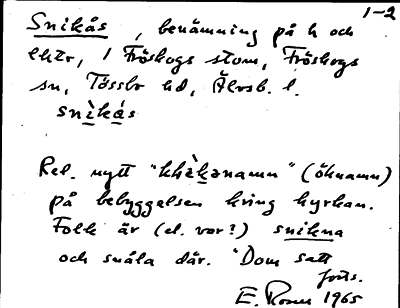 1-2
Snikås, benämning på h och
lhtr, i Fröskogs stom, Fröskogs
sn, Tössbo hd, Älvsb. l.
snìkás
Rel. nytt "khäkanamn" (öknamn)
på bebyggelsen kring kyrkan.
Folk är (el. var?) snikna
och snåla där. "Dom satt
forts.
E. Rosen 1965